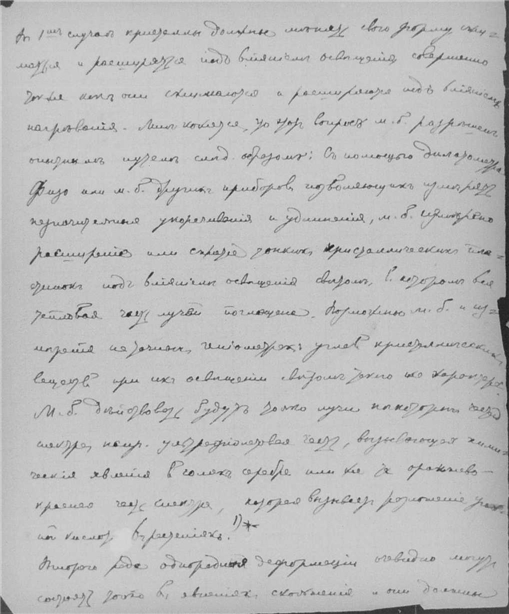 въ 1мъ случаѣ кристаллы должны мѣнять свою форму сжи-
маться и расширяться подъ вліяніемъ освѣщенія совершенно
также какъ они сжимаются и расширяются подъ вліяніемъ
нагрѣванія. Мнѣ кажется, что этотъ вопросъ м. б. разрѣшенъ
опытнымъ путемъ слѣд. образомъ: Съ помощью дилатометра
Физо или м. б. другихъ приборовъ позволяющихъ измѣрять
незначительныя укорачиванія и удлиненія, м. б. измѣрено
расширеніе или сжатіе тонкихъ кристаллическихъ пла-
стинокъ подъ вліяніемъ освѣщенія свѣтомъ, въ которомъ вся
тепловая часть лучей поглощена. Возможно м. б. и из-
мѣреніе на точныхъ гоніометрахъ угловъ кристаллическихъ
веществъ при ихъ освѣщеніи свѣтомъ такого же характера.
М. б. дѣйствовать будутъ только лучи нѣкоторой части
спектра, напр. ультрафіолетовая часть, вызывающая хими-
ческія явленія въ соляхъ серебра или же та оранжево-
красная часть спектра, которая вызываетъ разложеніе
ной кислоты въ растеніяхъ. 1)
Второго рода однородныя деформаціи очевидно могутъ
состоять только въ явленіяхъ скольженія и они должны